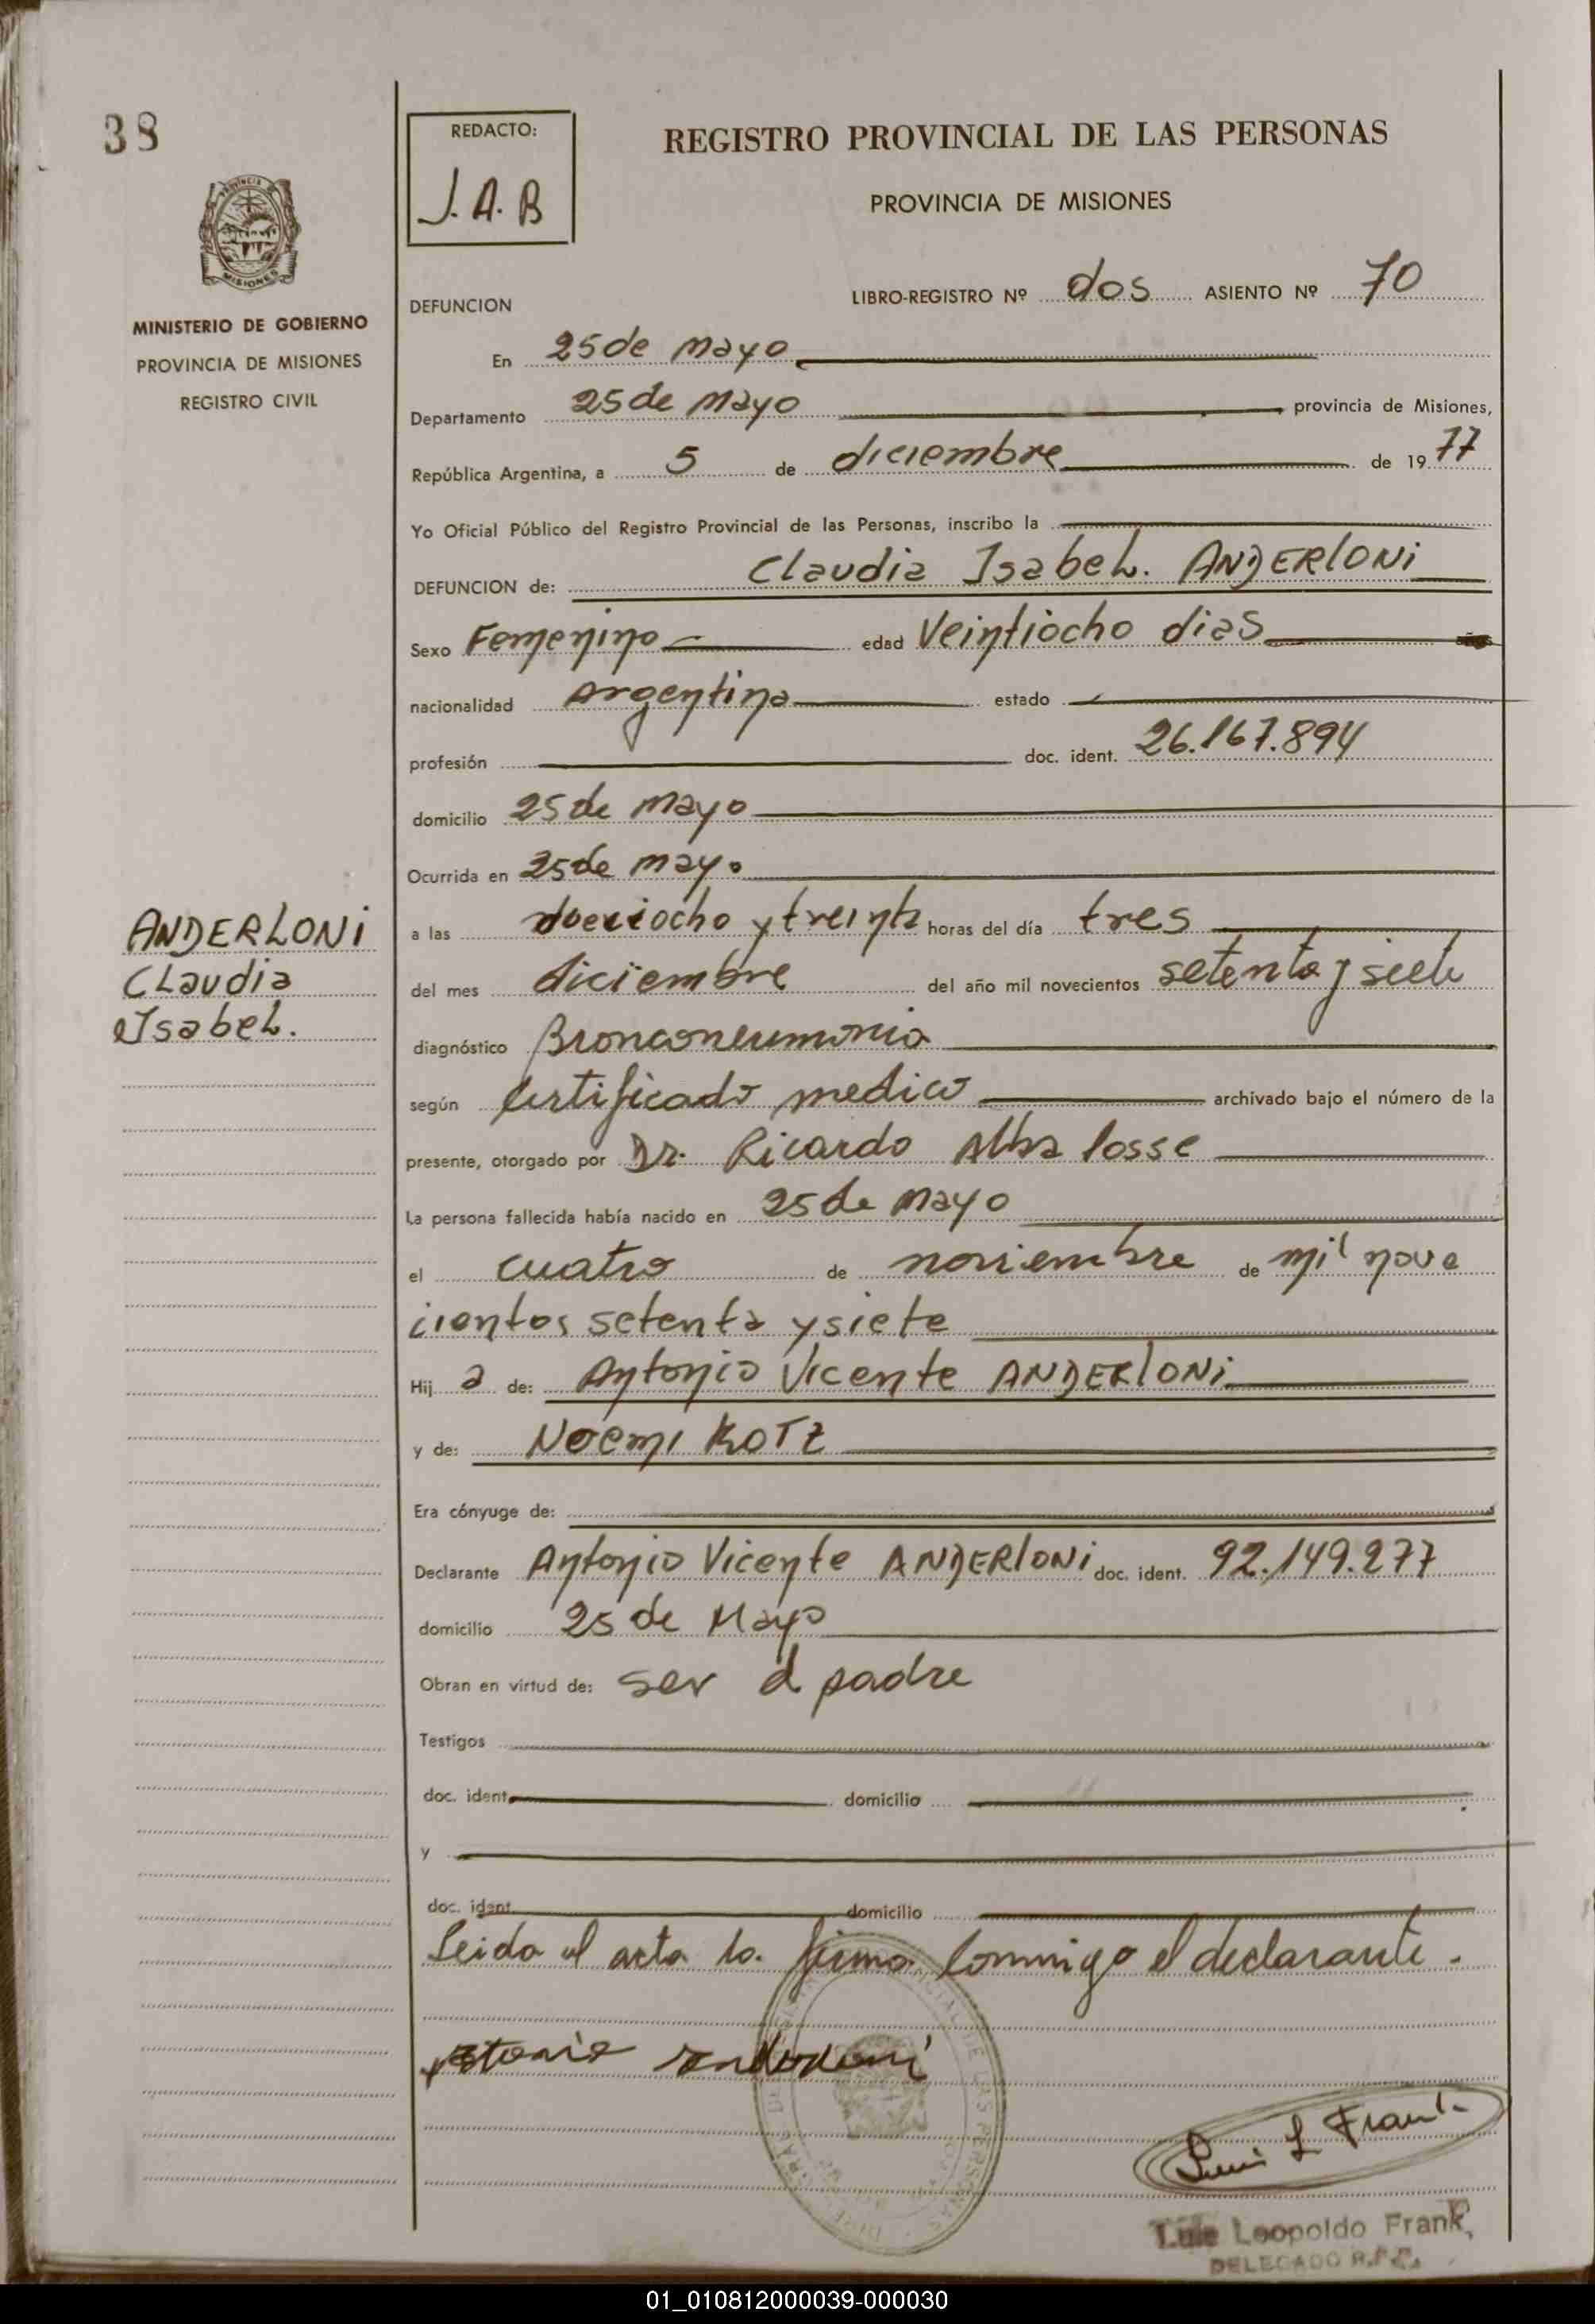 38
REDACTO:
J. A. B
REGISTRO PROVINCIAL DE LAS PERSONAS
PROVINCIA DE MISIONES
MISIONES
MINISTERIO DE GOBIERNO
PROVINCIA DE MISIONES
REGISTRO CIVIL
DEFUNCION
LIBRO-REGISTRO Nº dos ASIENTO Nº 70
En 25 de mayo
Departamento 25 de Mayo provincia de Misiones,
República Argentina, a 5 de diciembre de 1977
Yo Oficial Público del Registro Provincial de las Personas, inscribo la
DEFUNCION de: Claudia Isabel. ANDERlONi
Sexo Femenino edad Veintiocho dias
nacionalidad Argentina estado
profesión doc. ident. 26.167.894
domicilio 25 de mayo
Ocurrida en 25 de mayo
ANDERLONi
Claudia
Isabel.
a las dieciocho y treinta horas del día tres
del mes diciembre del año mil novecientos setenta y siete
diagnóstico Bronconeumonia
según Certificado medico archivado bajo el número de la
presente, otorgado por Dr. Ricardo Alba Posse
La persona fallecida había nacido en 25 de Mayo
el cuatro de noviembre de mil nove
cientos setenta y siete
Hij a de: Antonio Vicente ANDERlONi
y de: Noemi KOTZ
Era cónyuge de:
Declarante Antonio Vicente ANDERlONi doc. ident. 92.149.277
domicilio 25 de Mayo
Obran en virtud de: ser el padre
Testigos
doc. ident. domicilio
y
doc. ident. domicilio
Leida el acta la firma conmigo el declarante.
Luis L Frank
Luis Leopoldo Frank
DELEGADO R.P.P.
01_010812000039-000030